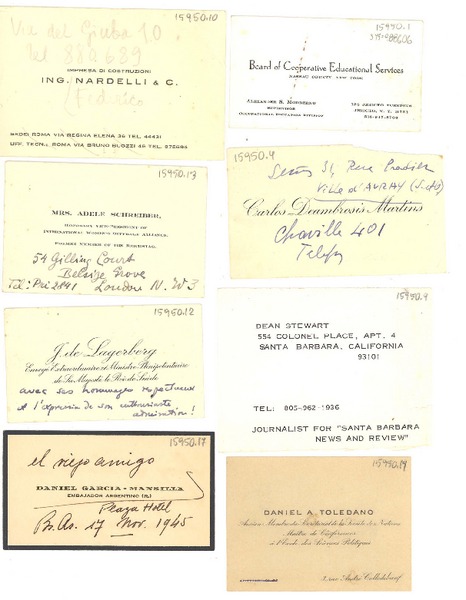 15950.10
Via del Giuba 10
tel 880689
IMPRESA DI COSTRUZIONI
ING. NARDELLI & C.
Federico
SEDE: ROMA VIA REGINA ELENA 36 TEL. 44431
UFF. TECN.: ROMA VIA BRUNO BUOZZI 45 TEL.
15950.13
MRS. ADELE SCHREIBER,
HONORARY VICE-PRESIDENT OF
INTERNATIONAL WOMEN'S SUFFRAGE ALLIANCE,
FORMER MEMBER OF THE REICHSTAG.
54 Gilling Court
Belsize Grove
Tel: Pri 2841 London N.W3
15950.12
J. de Lagerberg
Envoyé Extraordinaire et Ministre Plénipotentiaire
de Sa Majesté le Roi de Suède
avec ses hommages respectueux
et l'expression de son enthousiaste
admiration!
15950.17
el viejo amigo
DANIEL GARCIA-MANSILLA
EMBAJADOR ARGENTINO
Plaza Hotel
Bs. As. 17 Nov. 1945
15950.1
Board of Cooperative Educational Services
NASSAU COUNTY, NEW YORK
ALEXANDER S.
SUPERVISOR
OCCUPATIONAL EDUCATION DIVISION
JERICHO, N.Y.
15950.4
31, Rue Pradier
Ville d'AVRAY
Carlos Deambrosis Martins
Chaville 401
15950.9
DEAN STEWART
554 COLONEL PLACE, APT. 4
SANTA BARBARA, CALIFORNIA
93101
TEL: 805-962-1936
JOURNALIST FOR "SANTA BARBARA
NEWS AND REVIEW"
15950.14
DANIEL A. TOLEDANO
Ancien Membre du Secrétariat de la Société des Nations
Maître de Conférences
à l'Ecole des Sciences Politiques